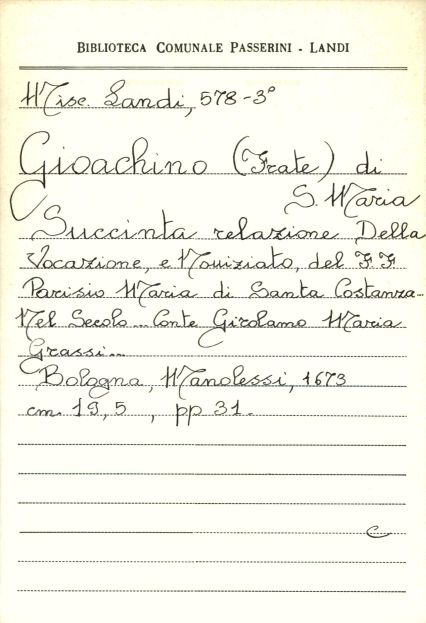 BIBLIOTECA COMUNALE PASSERINI - LANDI
Misc. Landi, 578-3°
Gioachino (Frate) di
S. Maria
Succinta relazione Della
Vocazione, e Nouiziato, del F. F.
Parisio Maria di Santa Costanza
Nel Secolo... Conte Girolamo Maria
Grassi...
Bologna, Manolessi, 1673
cm. 19,5 , pp 31.
C